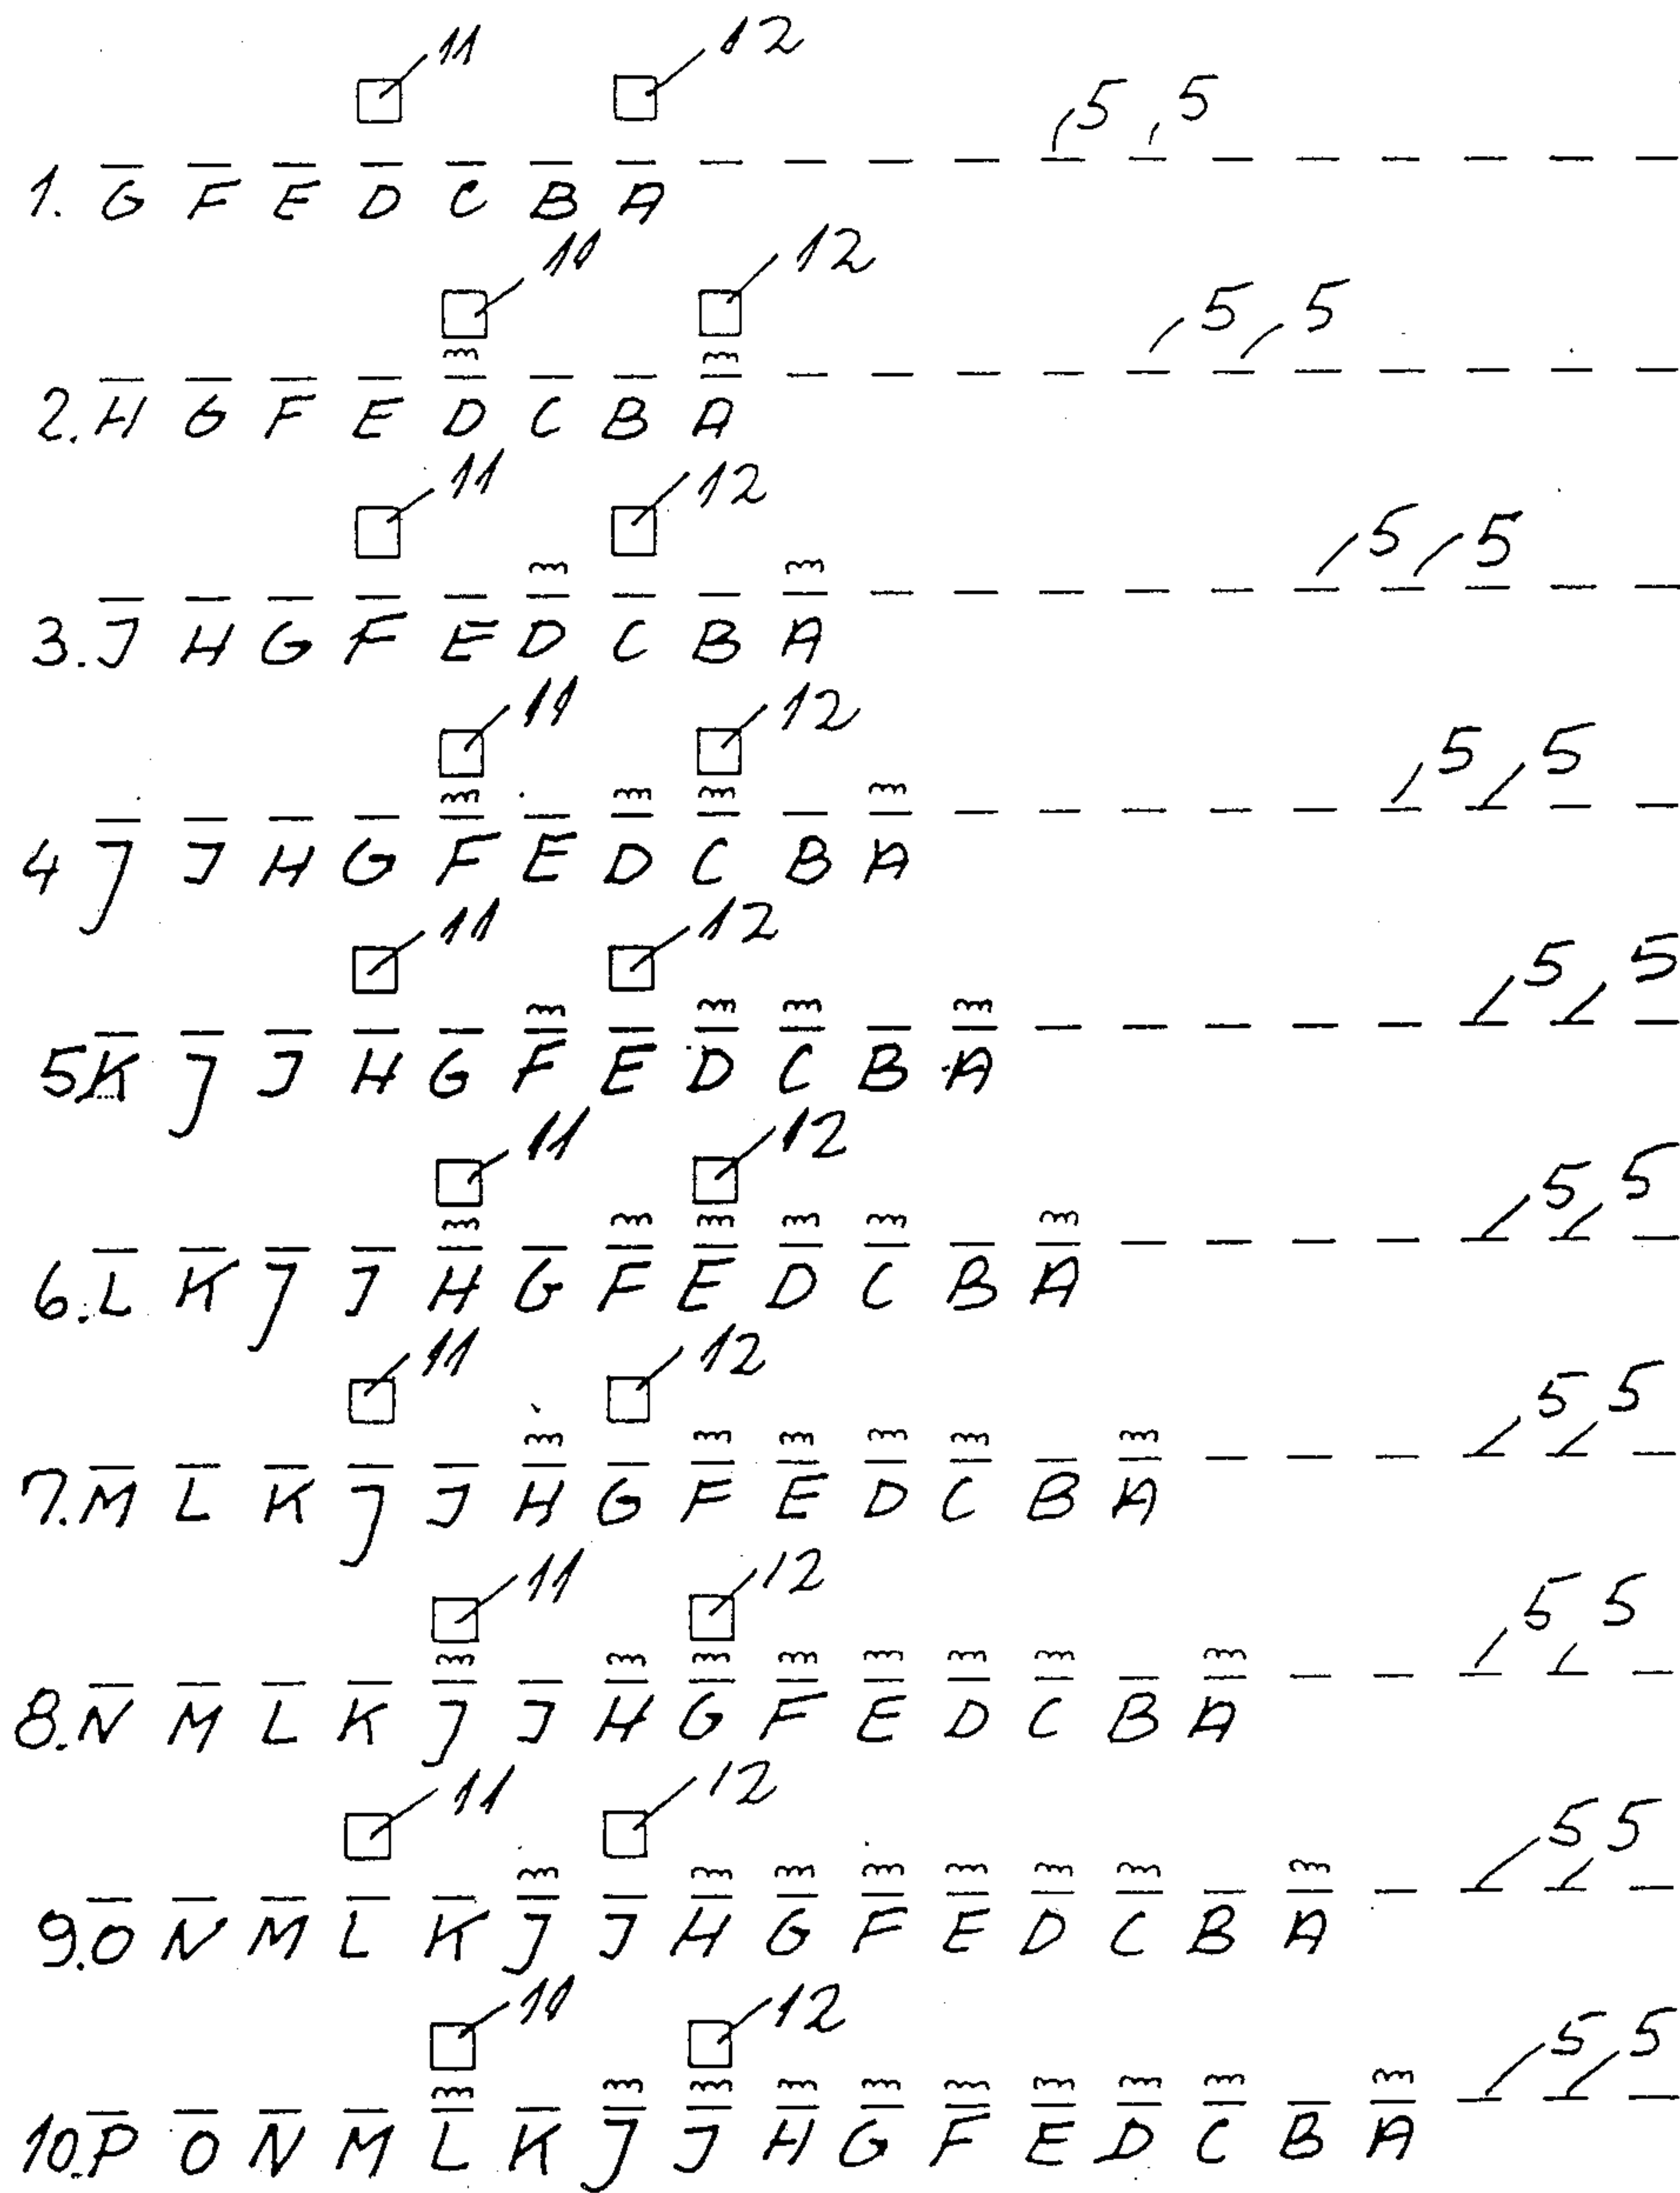 11 12
5 5
1. G F E D C B A
11 12
5 5
2. H G F E D C B A
11 12
5 5
3. I H G F E D C B A
11 12
5 5
4 J I H G F E D C B A
11 12
5 5
5 K J I H G F E D C B A
11 12
5 5
6. L K J I H G F E D C B A
11 12
5 5
7. M L K J I H G F E D C B A
11 12
5 5
8. N M L K J I H G F E D C B A
11 12
5 5
9. O N M L K J I H G F E D C B A
11 12
5 5
10. P O N M L K J I H G F E D C B A